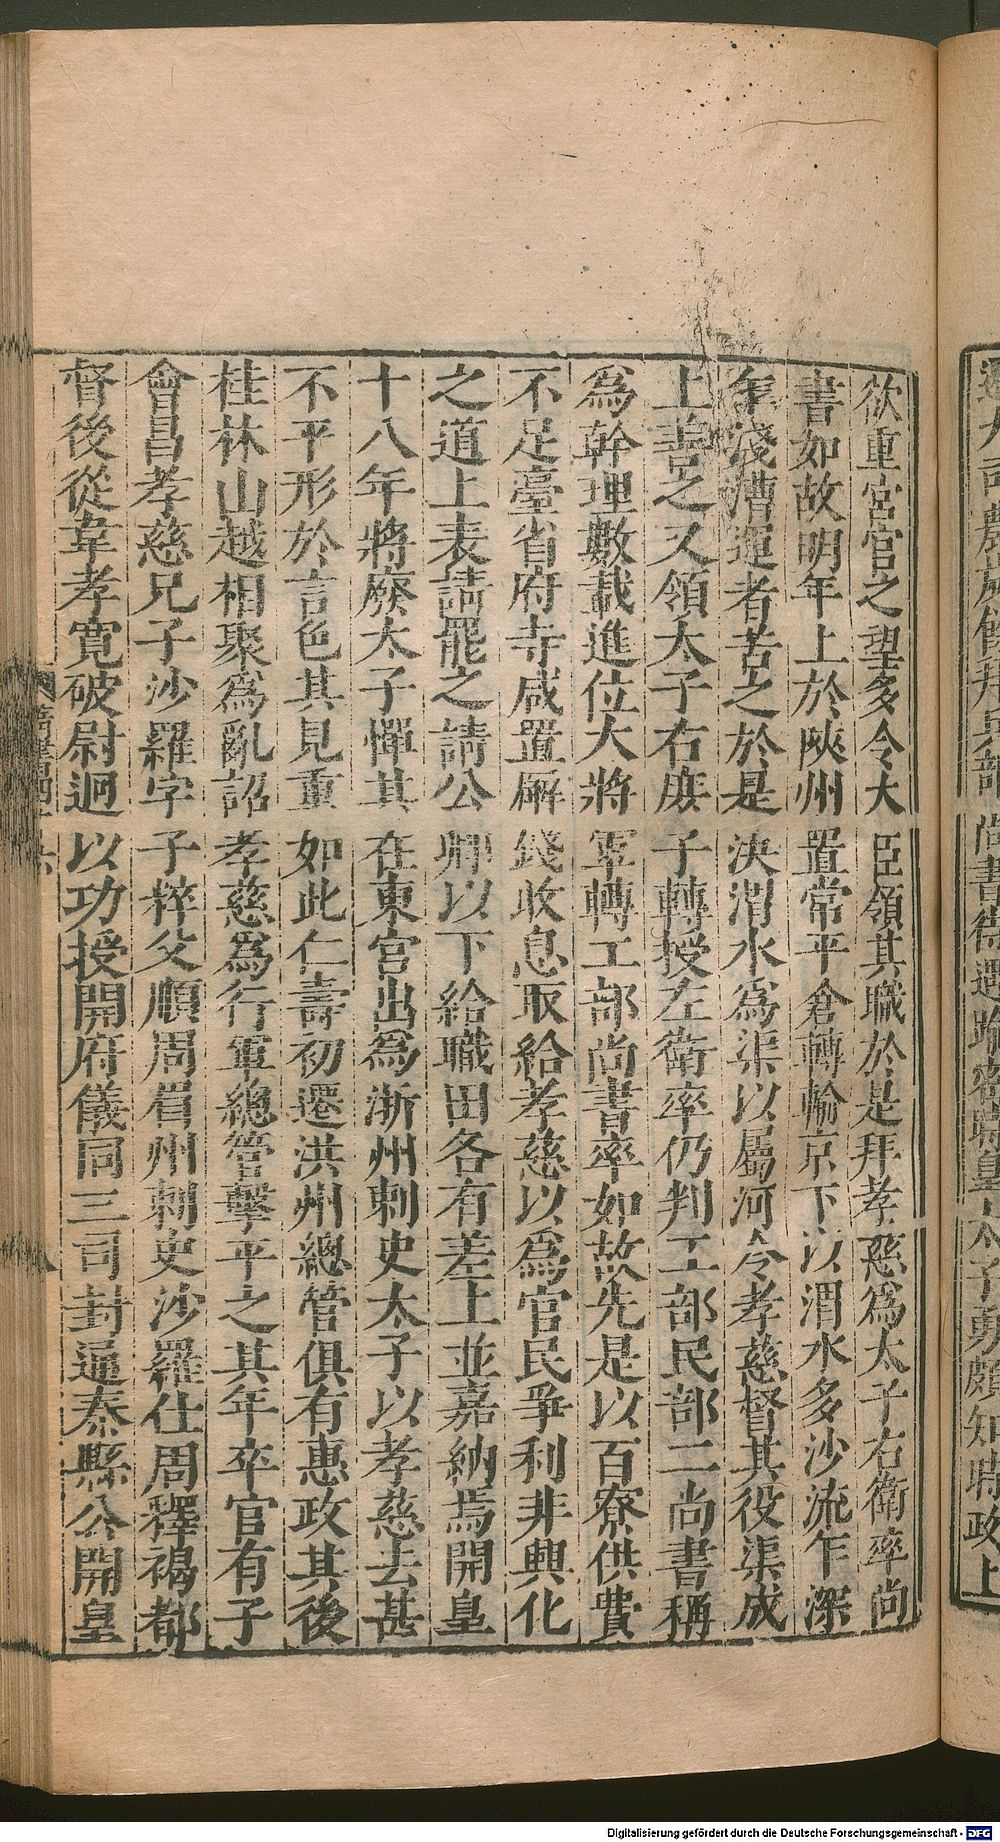 欲重宮官之望多令大臣領其職於是拜孝慈爲太子右衛率尚
書如故明年上於陝州置常平倉轉輸京下以渭水多沙流乍深
乍淺漕運者苦之於是決渭水爲渠以屬河令孝慈督其役渠成
上善之又領太子右庶子轉授左衛率仍判工部民部二尚書稱
爲幹理數載進位大將軍轉工部尚書率如故先是以百寮供費
不足臺省府寺咸置廨錢收息取給孝慈以爲官民爭利非興化
之道上表請罷之請公卿以下給職田各有差上並嘉納焉開皇
十八年將廢太子憚其在東宮出爲淅州刺史太子以孝慈去甚
不平形於言色其見重如此仁壽初遷洪州總管俱有惠政其後
桂林山越相聚爲亂詔孝慈爲行軍總管擊平之其年卒官有子
會昌孝慈兄子沙羅字子粹父順周眉州刺史沙羅仕周釋褐都
督後從韋孝寬破尉迥以功授開府儀同三司封通泰縣公開皇
八
Digitalisierung gefördert durch die Deutsche Forschungsgemeinschaft - DFG